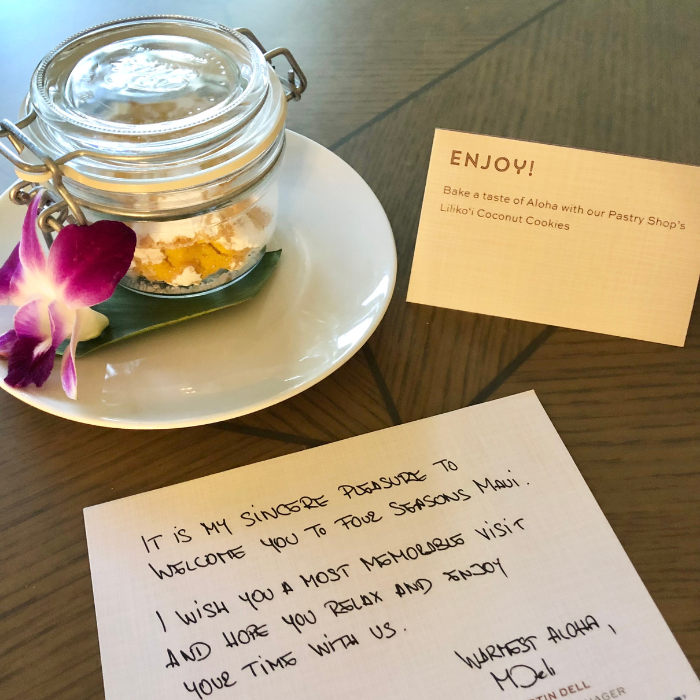 ENJOY!
Bake a taste of Aloha with our Pastry Shop's
Liliko'i Coconut Cookies
IT IS MY SINCERE PLEASURE TO
WELCOME YOU TO FOUR SEASONS MAUI.
I WISH YOU A MOST MEMORABLE VISIT
AND HOPE YOU RELAX AND ENJOY
YOUR TIME WITH US.
WARMEST ALOHA,
TIN DELL